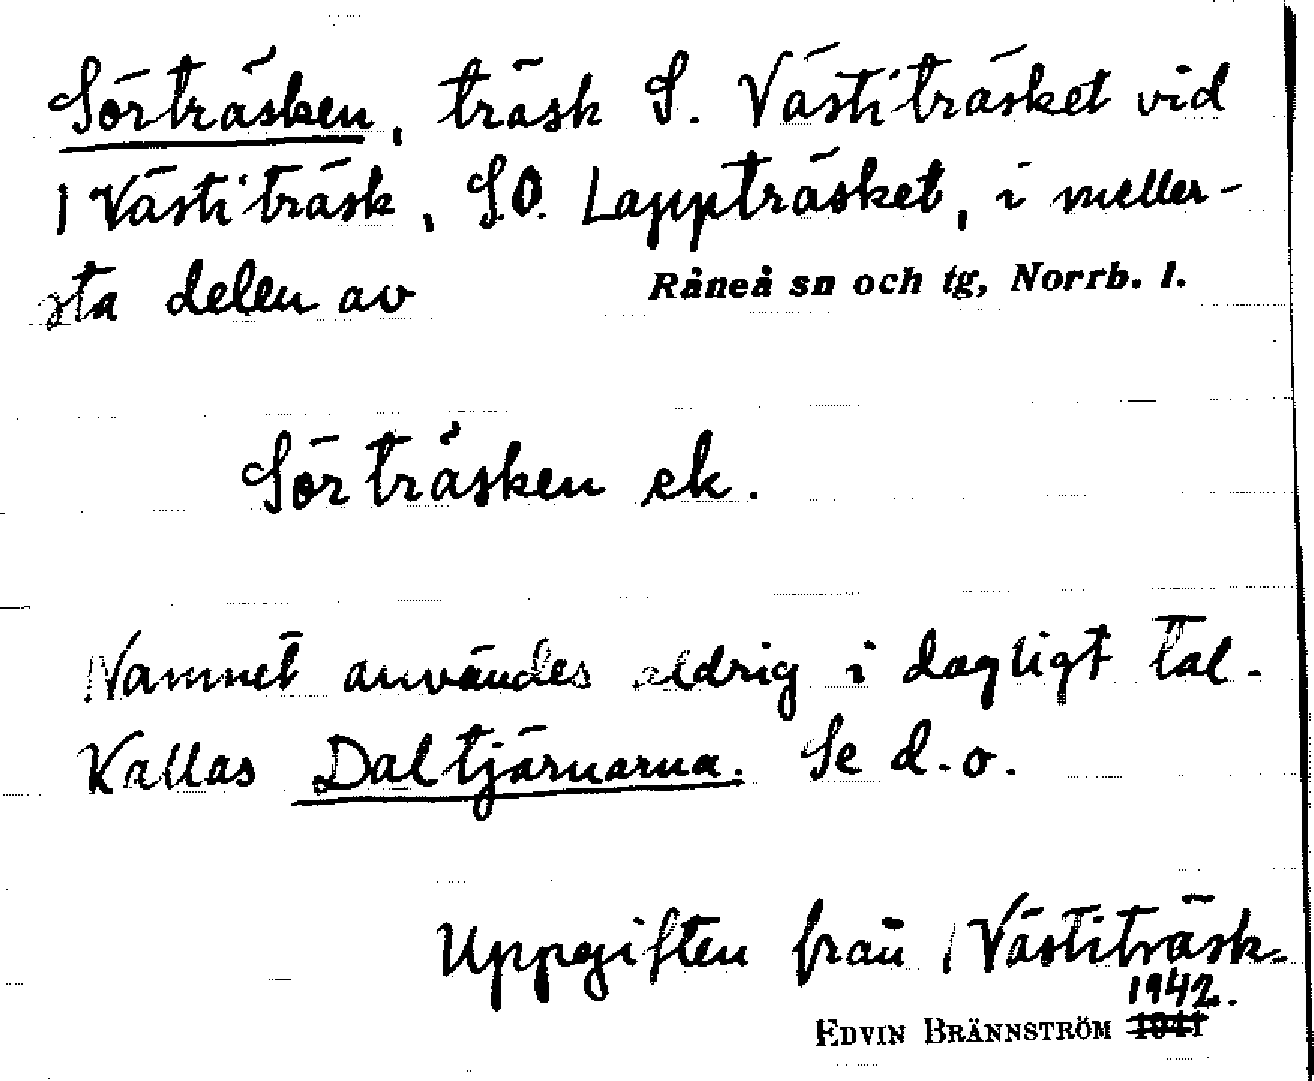 Sörträsken, träsk S. Västiträsket vid
Västiträsk, SO. Lappträsket, i meller-
sta delen av Råneå sn och tg, Norrb. l.
Sörträsken ek.
Namnet användes aldrig i dagligt tal.
Kallas Daltjärnarna. Se d.o.
Uppgiften från Västiträsk.
1942.
EDVIN BRÄNNSTRÖM 1941